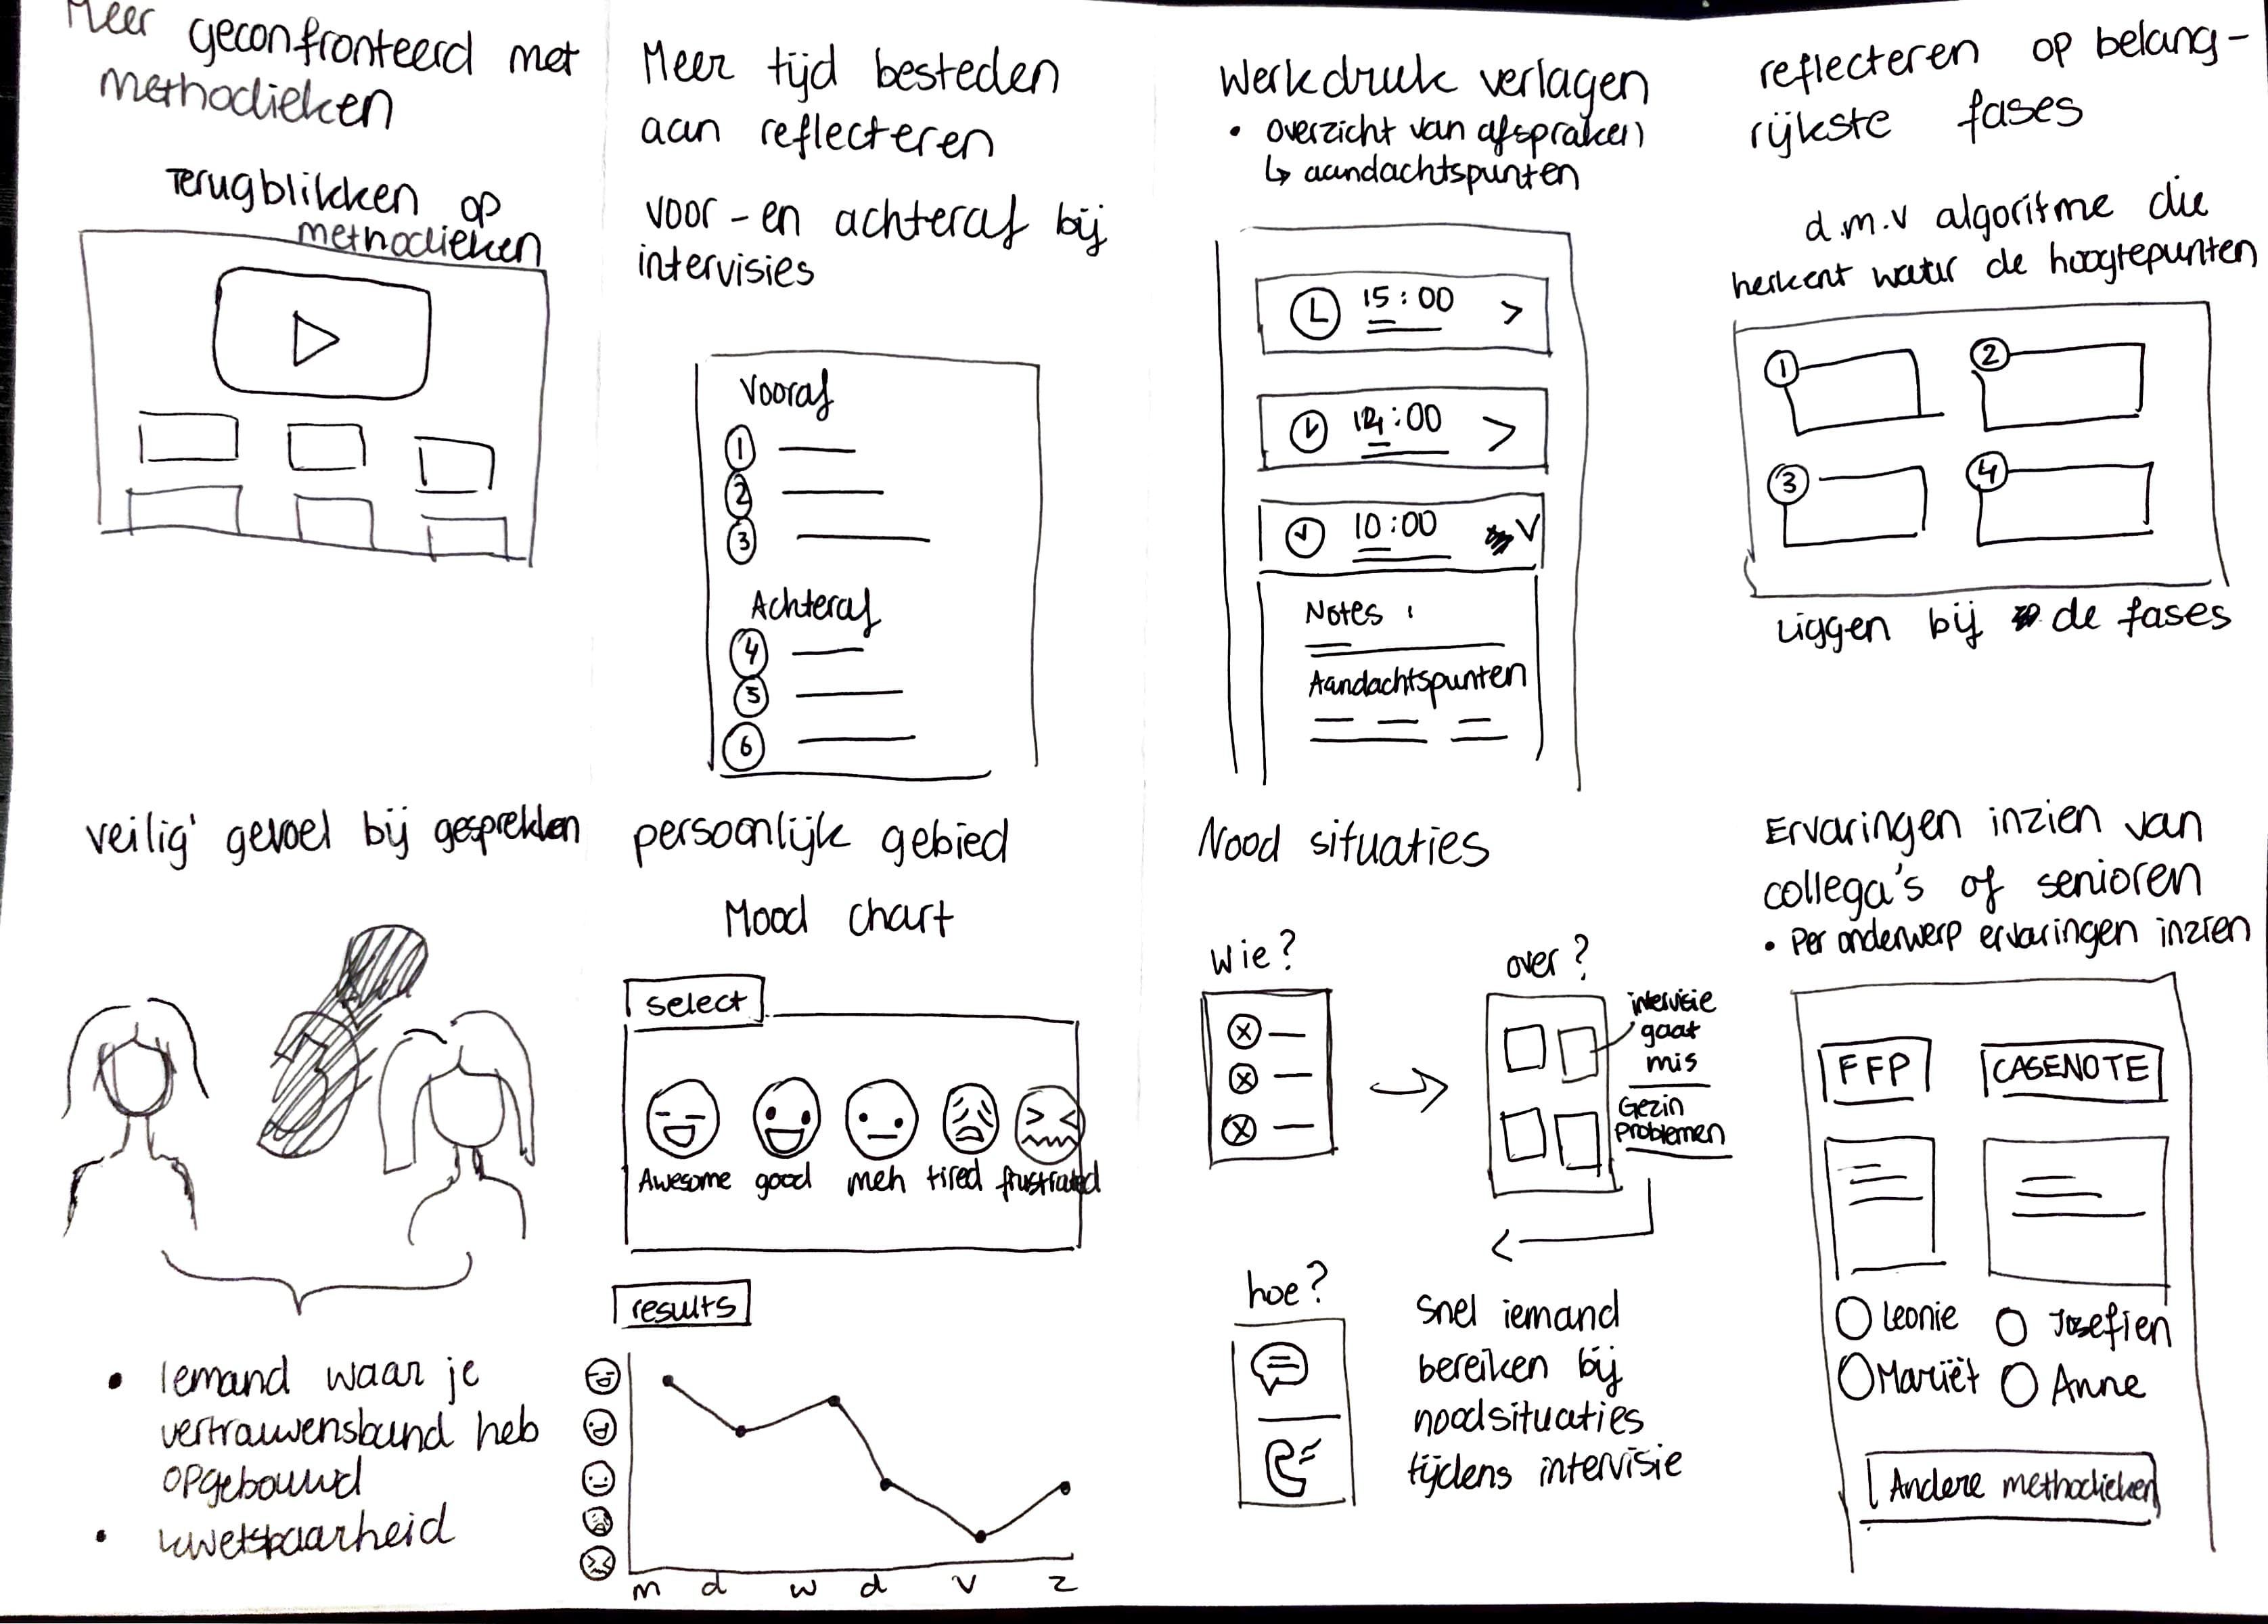 Meer geconfronteerd met
methodieken
Terugblikken op
methodieken
Meer tijd besteden
aan reflecteren
voor-en achteraf bij
intervisies
Vooraf
1
2
3
Achteraf
4
5
6
Werkdruk verlagen
• overzicht van afspraken
↳ aandachtspunten
15:00 >
:00 >
10:00 V
Notes :
Aandachtspunten
reflecteren op belang-
rijkste fases
d.m.v algoritme die
herkent waar de hoogtepunten
1 2
3 4
Liggen bij de fases
veilig gevoel bij gesprekken
• Iemand waar je
vertrouwensband heb
opgebouwd
• kwetsbaarheid
persoonlijk gebied
Mood chart
select
Awesome good meh tired frustrated
results
m d w d v z
Nood situaties
wie?
over?
intervisie
gaat
mis
Gezin
problemen
hoe?
Snel iemand
bereiken bij
noodsituaties
tijdens intervisie
Ervaringen inzien van
collega's of senioren
• Per onderwerp ervaringen inzien
FFP CASENOTE
Leonie Josefien
Mariët Anne
Andere methodieken